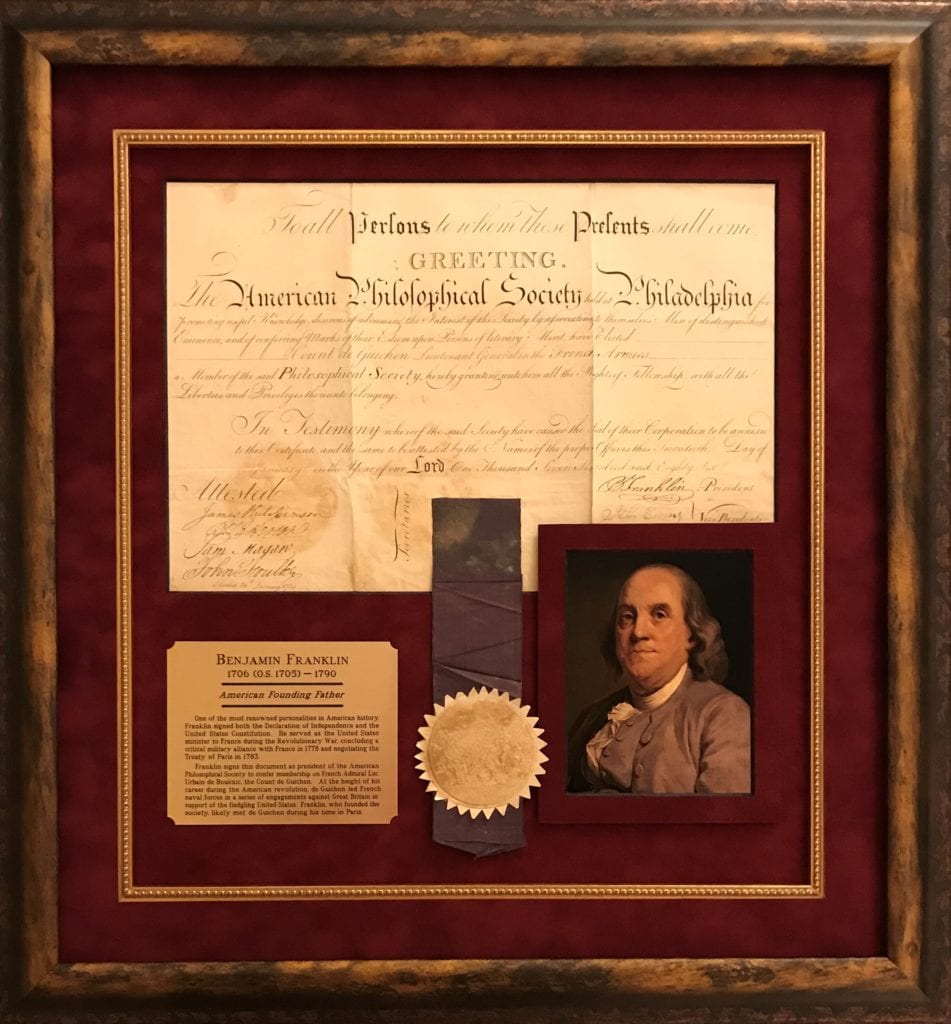 To all Persons to whom these Presents shall come
GREETING.
The American Philosophical Society held at Philadelphia for
promoting useful Knowledge, desirous of advancing the Interest of the Society by associating to themselves Men of distinguished
Eminence, and of conferring Marks of their Esteem upon Persons of literary Merit, have Elected
Count de Guichen Lieutenant General in the French Armies
a Member of the said Philosophical Society, hereby granting unto him all the Rights of Fellowship, with all the
Liberties and Privileges thereunto belonging.
In Testimony whereof the said Society have caused the Seal of their Corporation to be annexed
to this Certificate, and the same to be attested by the Names of the proper Officers this Twentieth Day of
January in the Year of our Lord One Thousand Seven Hundred and Eighty Six
Attested
B Franklin President
James Hutchinson
John Ewing Vice Presidents
Sam Magaw
John Foulke
Secretaries
BENJAMIN FRANKLIN
1706 (O.S. 1705) — 1790
American Founding Father
One of the most renowned personalities in American history,
Franklin signed both the Declaration of Independence and the
United States Constitution. He served as the United States
minister to France during the Revolutionary War, concluding a
critical military alliance with France in 1778 and negotiating the
Treaty of Paris in 1783.
Franklin signs this document as president of the American
Philosophical Society to confer membership on French Admiral Luc
Urbain de Bouëxic, the Count de Guichen. At the height of his
career during the American revolution, de Guichen led French
naval forces in a series of engagements against Great Britain in
support of the fledgling United States. Franklin, who founded the
society, likely met de Guichen during his time in Paris.